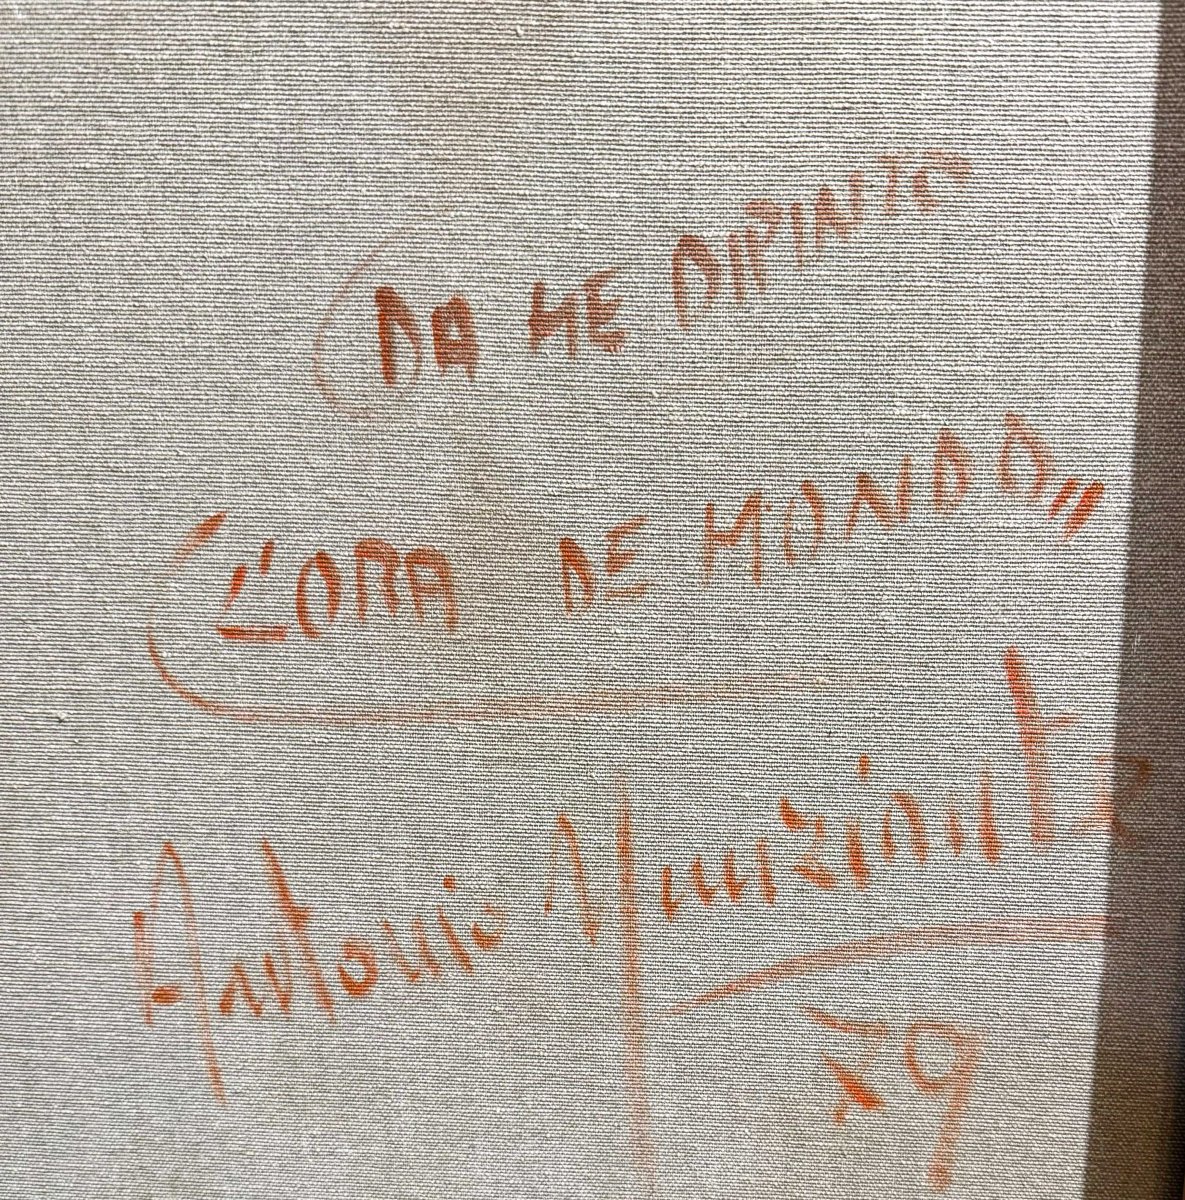 DA ME DIPINTO
L'ORA DE MONDO„
Antonio Nunziante
79